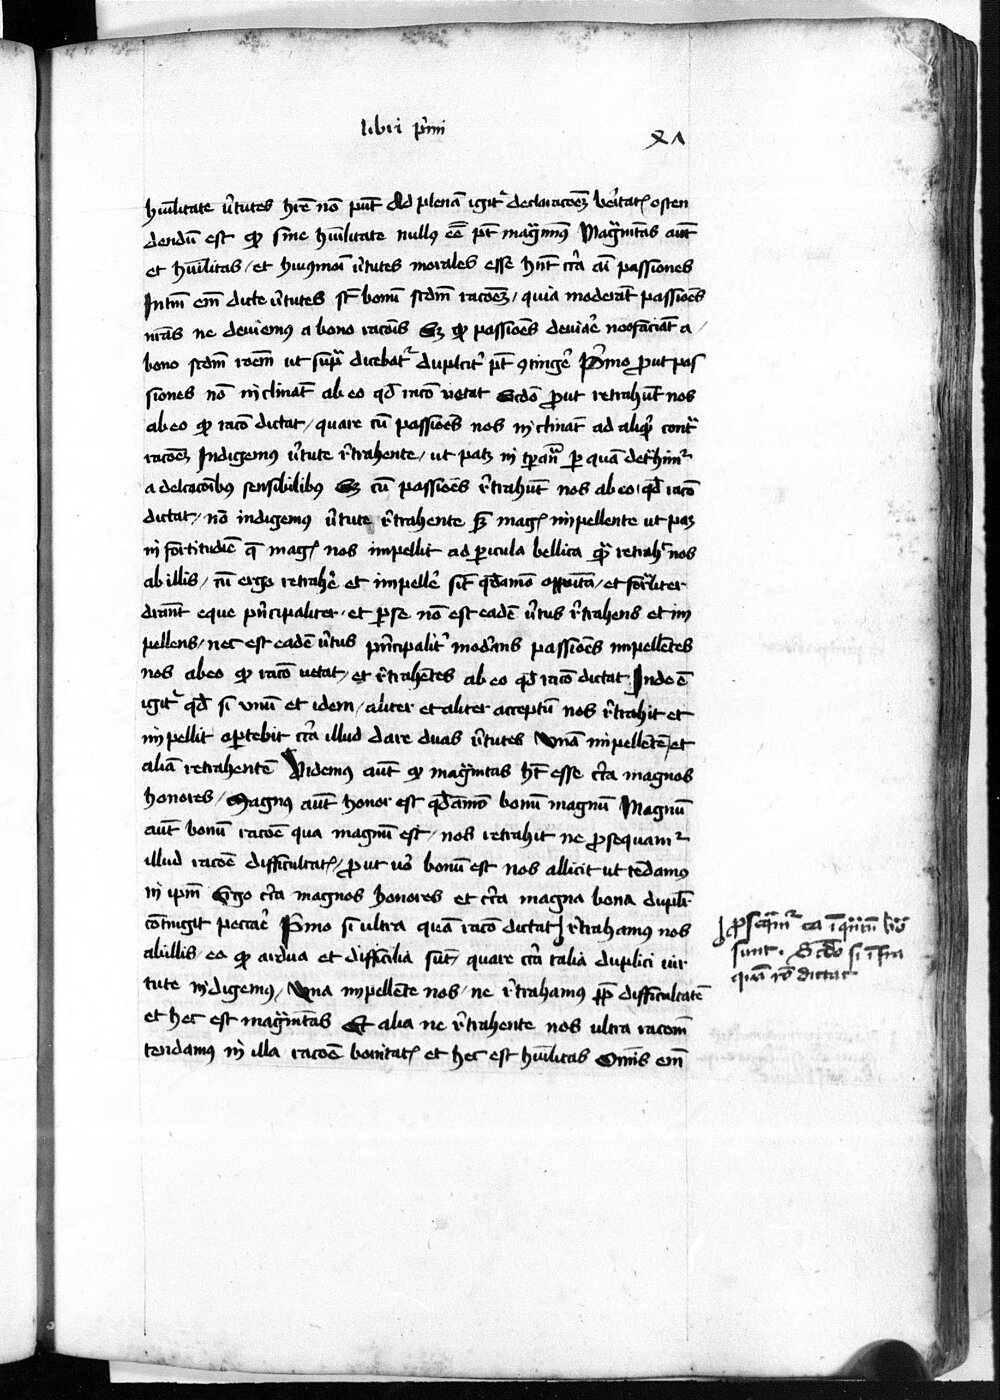 libri p̃mi
XΛ
hũilitate ṽtutes hr̃e nõ pñt Ad plenã igit᷑ declarac̃oeꝫ ṽitat᷑ osten
dendũ est ꝙ sine hũilitate nullꝯ eẽ pt̃ magñimꝯ Magñitas aũt
et hũilitas / et hiꝯmõi ṽtutes morales esse hñt cr̃a ali passiones
eñi dicte ṽtutes st̃ bonũ scdm̃ rac̃oeꝫ / quia moderãt passiões
nr̃as ne deviemꝯ a bono rac̃ois Sꝫ ꝙ passiões nos faciãt a /
bono scdm̃ roẽm ut sup᷑ dicebat᷑ duplcit᷑ pt̃ ꝯtingẽ P̃mo ꝓut pas
siones nõ inclinãt ab eo qd̃ rac̃o vetat Scdõ ꝓut retrahũt nos
ab eo ꝙ rac̃o dictat / quare cũ passiões nos inclinãt ad aliqͩ cont᷑
rac̃oeꝫ Indigemꝯ ṽtute r̃trahente / ut patꝫ in tꝑañ ꝑ quã det᷑himr᷑
a delcac̃oibꝯ sensibilibꝯ Sꝫ cũ passiões r̃trahũt nos ab eo qd̃ rac̃o
dictat / nõ indigemꝯ ṽtute r̃trahente sꝫ mag᷑ impellente ut paꝫ
in fortitudiẽ q̃ mag᷑ nos impellit ad ꝑicula bellica q᷑ retrah᷑ nos
ab illis / cũ ergo retrahẽ et impellẽ sit q̃damõ opp̃oita / et for᷑liter
drãnt eque pñcipaliter / et ꝑ se nõ est eadẽ ṽtus r̃trahens et im
pellens / nec est eadẽ ṽtus pñcipalit᷑ mod᷑ans passiões impellẽtes
nos ab eo ꝙ rac̃o vetat / et r̃trahẽtes ab eo qd̃ rac̃o dictat Inde ẽ
igit᷑ qd̃ si vnũ et idem / aliter et aliter acceptũ nos r̃trahit et
impellit oꝑtebit cr̃a illud dare duas ṽtutes Vnã impellẽtẽ / et
aliã retrahentẽ Videmus aũt ꝙ magñitas ht̃ esse cr̃a magnos
honores / Magnꝯ aũt honor est q̃damõ bonũ magnũ Magnũ
aũt bonũ rac̃oẽ qua magnũ est / nos retrahit ne ꝓsequam᷑
illud rac̃oẽ difficultat᷑ / ꝓut vo᷑ bonũ est nos allicit ut tẽdamꝯ
in ip̃m Ergo cr̃a magnos honores et cr̃a magna bona dupl᷑r
cõtingit peccar᷑ P̃mo si ultra quã rac̃o dictat r̃trahamꝯ nos
ab illis / eo ꝙ ardua et difficilia sũt / quare cr̃a talia duplici vir
tute indigemꝯ / Vna impellẽte nos / ne r̃trahamus ꝓpt᷑ difficultatẽ
et hec est magñitas Et alia ne r̃trahente nos ultra rac̃om̃
tendamꝯ in illa rac̃oẽ bonitat᷑ et hec est hũilitas Om̃is eñi
ꝓseq̃m᷑ ea inq̃ntũ bõa
sunt . Scdo si infra
quã rõ dictat